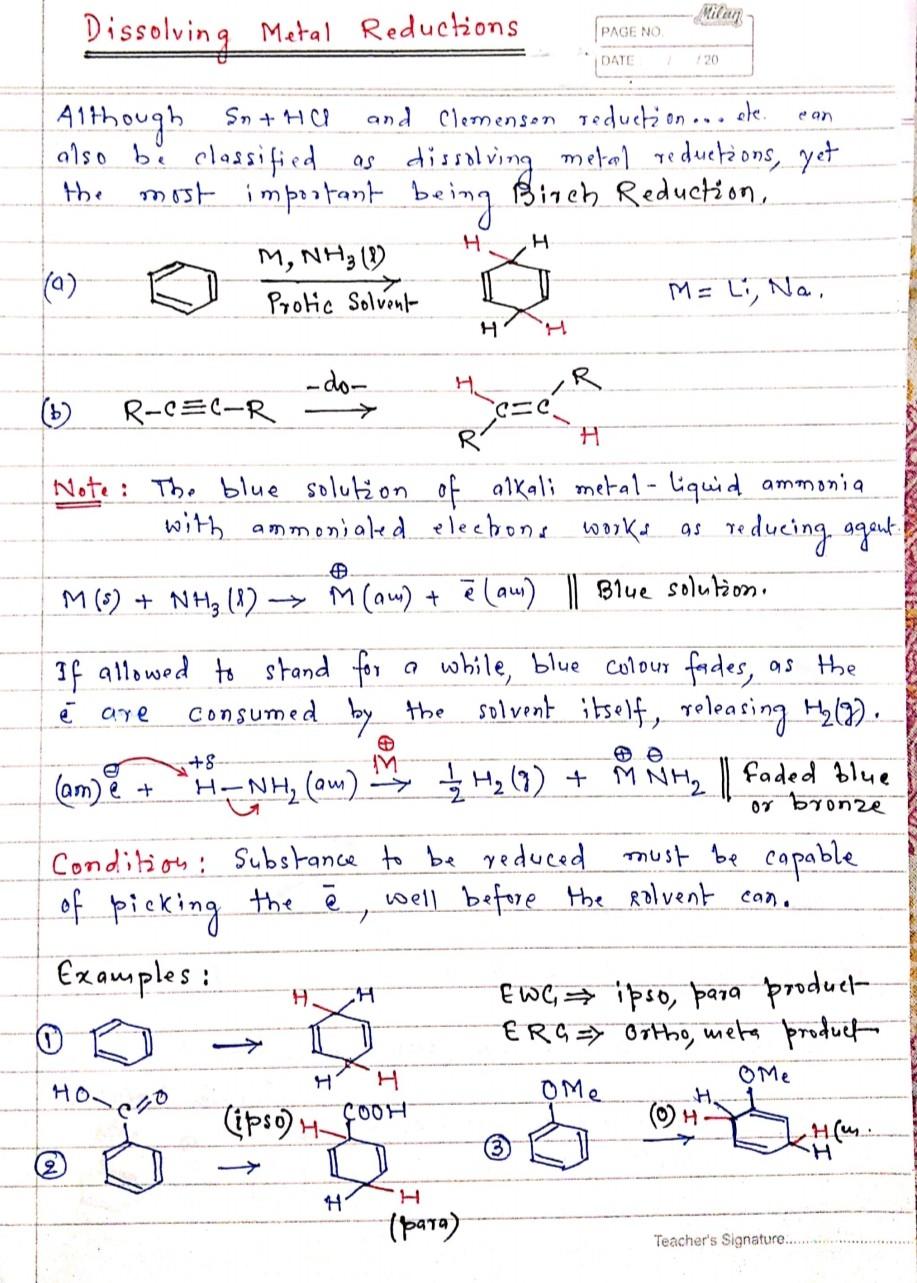 Dissolving Metal Reductions
Milan
PAGE NO.
DATE / / 20
Although Sn + HCl and Clemenson reduction... etc. can
also be classified as dissolving metal reductions, yet
the most important being Birch Reduction.
(a) M, NH₃(l) H H
Protic Solvent M = Li, Na.
H H
(b) R-C≡C-R -do- H R
C=C
R H
Note: The blue solution of alkali metal-liquid ammonia
with ammoniated electrons works as reducing agent.
M(s) + NH₃(l) → M⊕(am) + ē(am) || Blue solution.
If allowed to stand for a while, blue colour fades, as the
ē are consumed by the solvent itself, releasing H₂(g).
(am) e⊖ + +δ H-NH₂(am) M⊕ → ½ H₂(g) + M⊕ N⊖H₂ || faded blue
or bronze
Condition: Substance to be reduced must be capable
of picking the ē, well before the solvent can.
Examples:
H H EWG ⇒ ipso, para product
① → ERG ⇒ Ortho, meta product
H H
HO C=O (ipso) H COOH OMe (o) H H OMe
② → ③ → H (m.
H
H H
(para)
Teacher's Signature....................